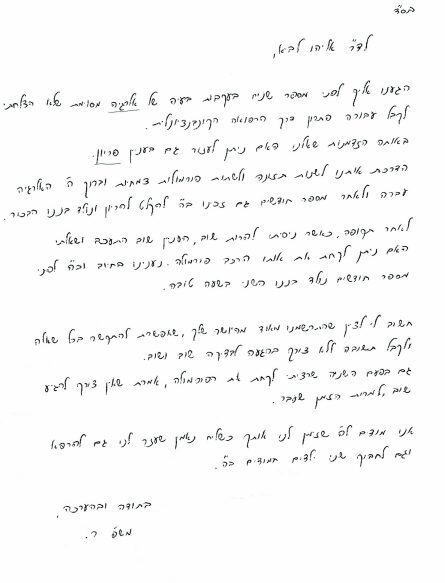 בס"ד
לד"ר אליהו לביא,
הגענו אליך לפני מספר שנים בעקבות בעיה של אלרגיה מסוימת שלא הצלחתי
לקבל עבורה פתרון דרך הרפואה הקונבנציונלית.
באותה הזדמנות שאלנו האם ניתן לעזור גם בענין פריון.
הדרכת אותנו לשנות תזונה ולשתות פורמולות צמחיות וברוך ה' האלרגיה
עברה ולאחר מספר חודשים גם זכינו ב"ה להקלט להריון ונולד בננו הבכור.
לאחר תקופה, כאשר ניסיתי להרות שוב, הענין שוב התעכב ושאלתי
האם ניתן לקחת את אותו הרכב פורמולה. נענינו בחיוב וב"ה לפני
מספר חודשים נולד בננו השני בשעה טובה.
חשוב לי לציין שהתרשמנו מאוד מהיושר שלך, שאפשרת להתקשר בכל שאלה
ולקבל תשובה ללא צורך בהגעה לבדיקה שוב ושוב.
גם בפעם השניה שרצית לקחת את הפורמולה, אמרת שאין צורך להגיע
שוב, למרות הזמן שעבר.
אנו מודים לה' שזימן לנו אותך כשליח נאמן שעזר לנו גם להרפא
וגם לחבוק שני ילדים חמודים ב"ה.
בתודה ובהערכה,
משפ' ר.